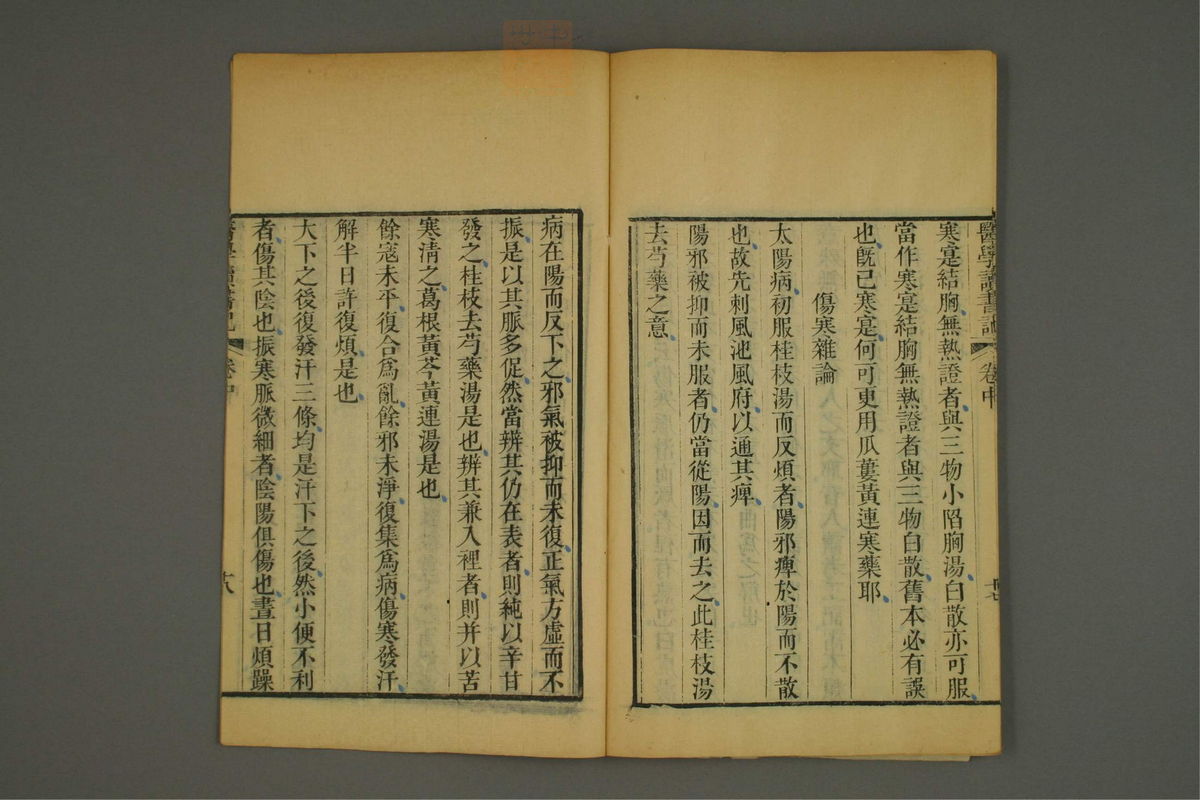 醫學讀書記 卷中
寔結胸無熱證者與三物小陷胸湯白散亦可服
當作寒寔結胸無熱證者與三物白散舊本必有誤
也旣已寒寔何可更用瓜蔞黃連寒藥耶
傷寒雜論
太陽病初服桂枝湯而反煩者陽邪痺於陽而不散
也故先刺風池風府以通其痺
陽邪被抑而未服者仍當從陽因而去之此桂枝湯
去芍藥之意
病在陽而反下之邪氣被抑而未復正氣方虛而不
振是以其脈多促然當辨其仍在表者則純以辛甘
發之桂枝去芍藥湯是也辨其兼入裡者則并以苦
寒淸之葛根黃芩黃連湯是也
餘寇未平復合爲亂餘邪未淨復集爲病傷寒發汗
解半日許復煩是也
大下之後復發汗三條均是汗下之後然小便不利
者傷其陰也振寒脈微細者陰陽俱傷也晝日煩躁
醫學讀書記 卷中 十八